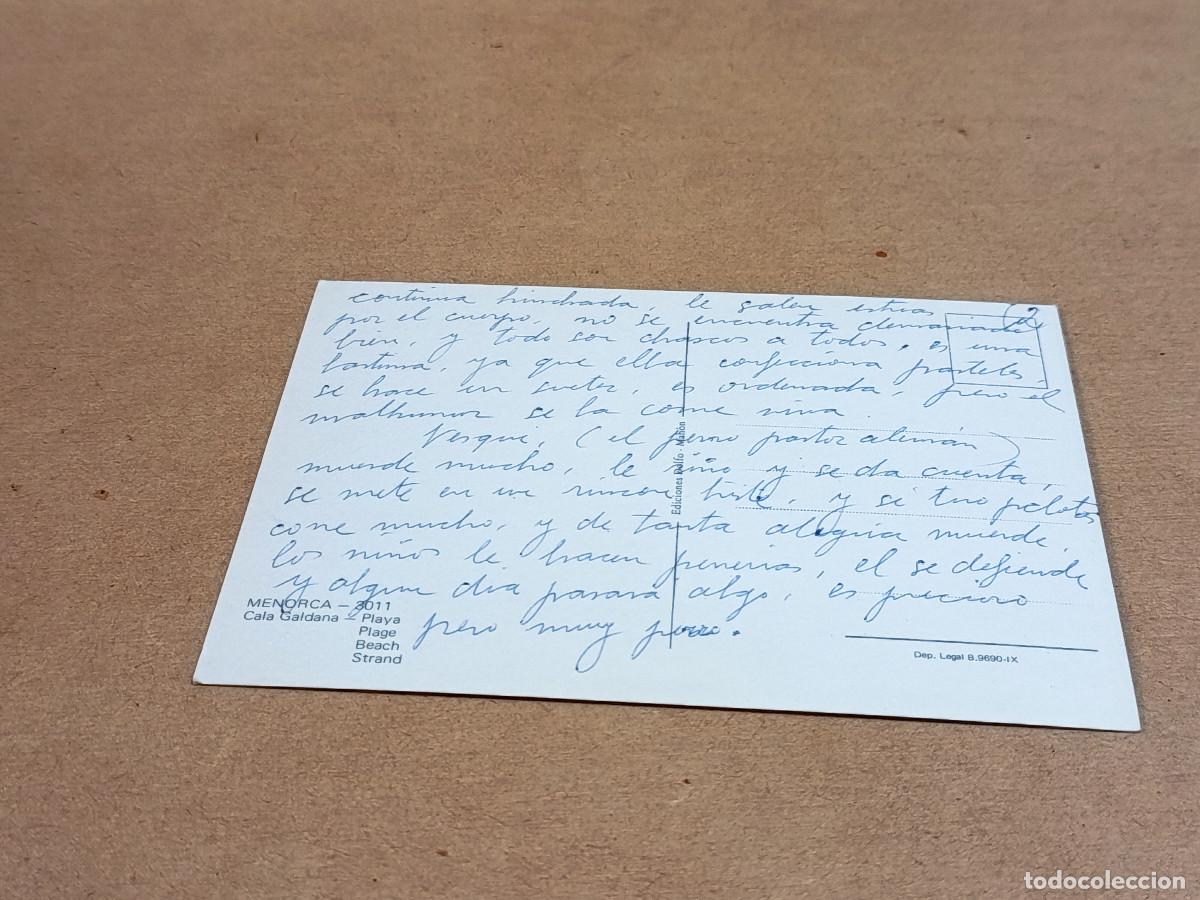 continua hinchada, le salen estrias (2)
por el cuerpo, no se encuentra demasiado
bien, y todo son chascos a todos, es una
lastima, ya que ella confecciona pasteles,
se hace un sueter, es ordenada, pero el
malhumor se la come viva.
(el perro pastor alemán)
muerde mucho, le riño y se da cuenta,
se mete en un rincon triste, y si
come mucho, y de tanta alegria muerde,
los niños le hacen perrerias, el se defiende
y algun dia pasará algo, es precioso
pero muy perro.
MENORCA – 3011
Cala Galdana – Playa
Plage
Beach
Strand
Ediciones Dolfo - Mahón
Dep. Legal B.9690-IX
todocoleccion